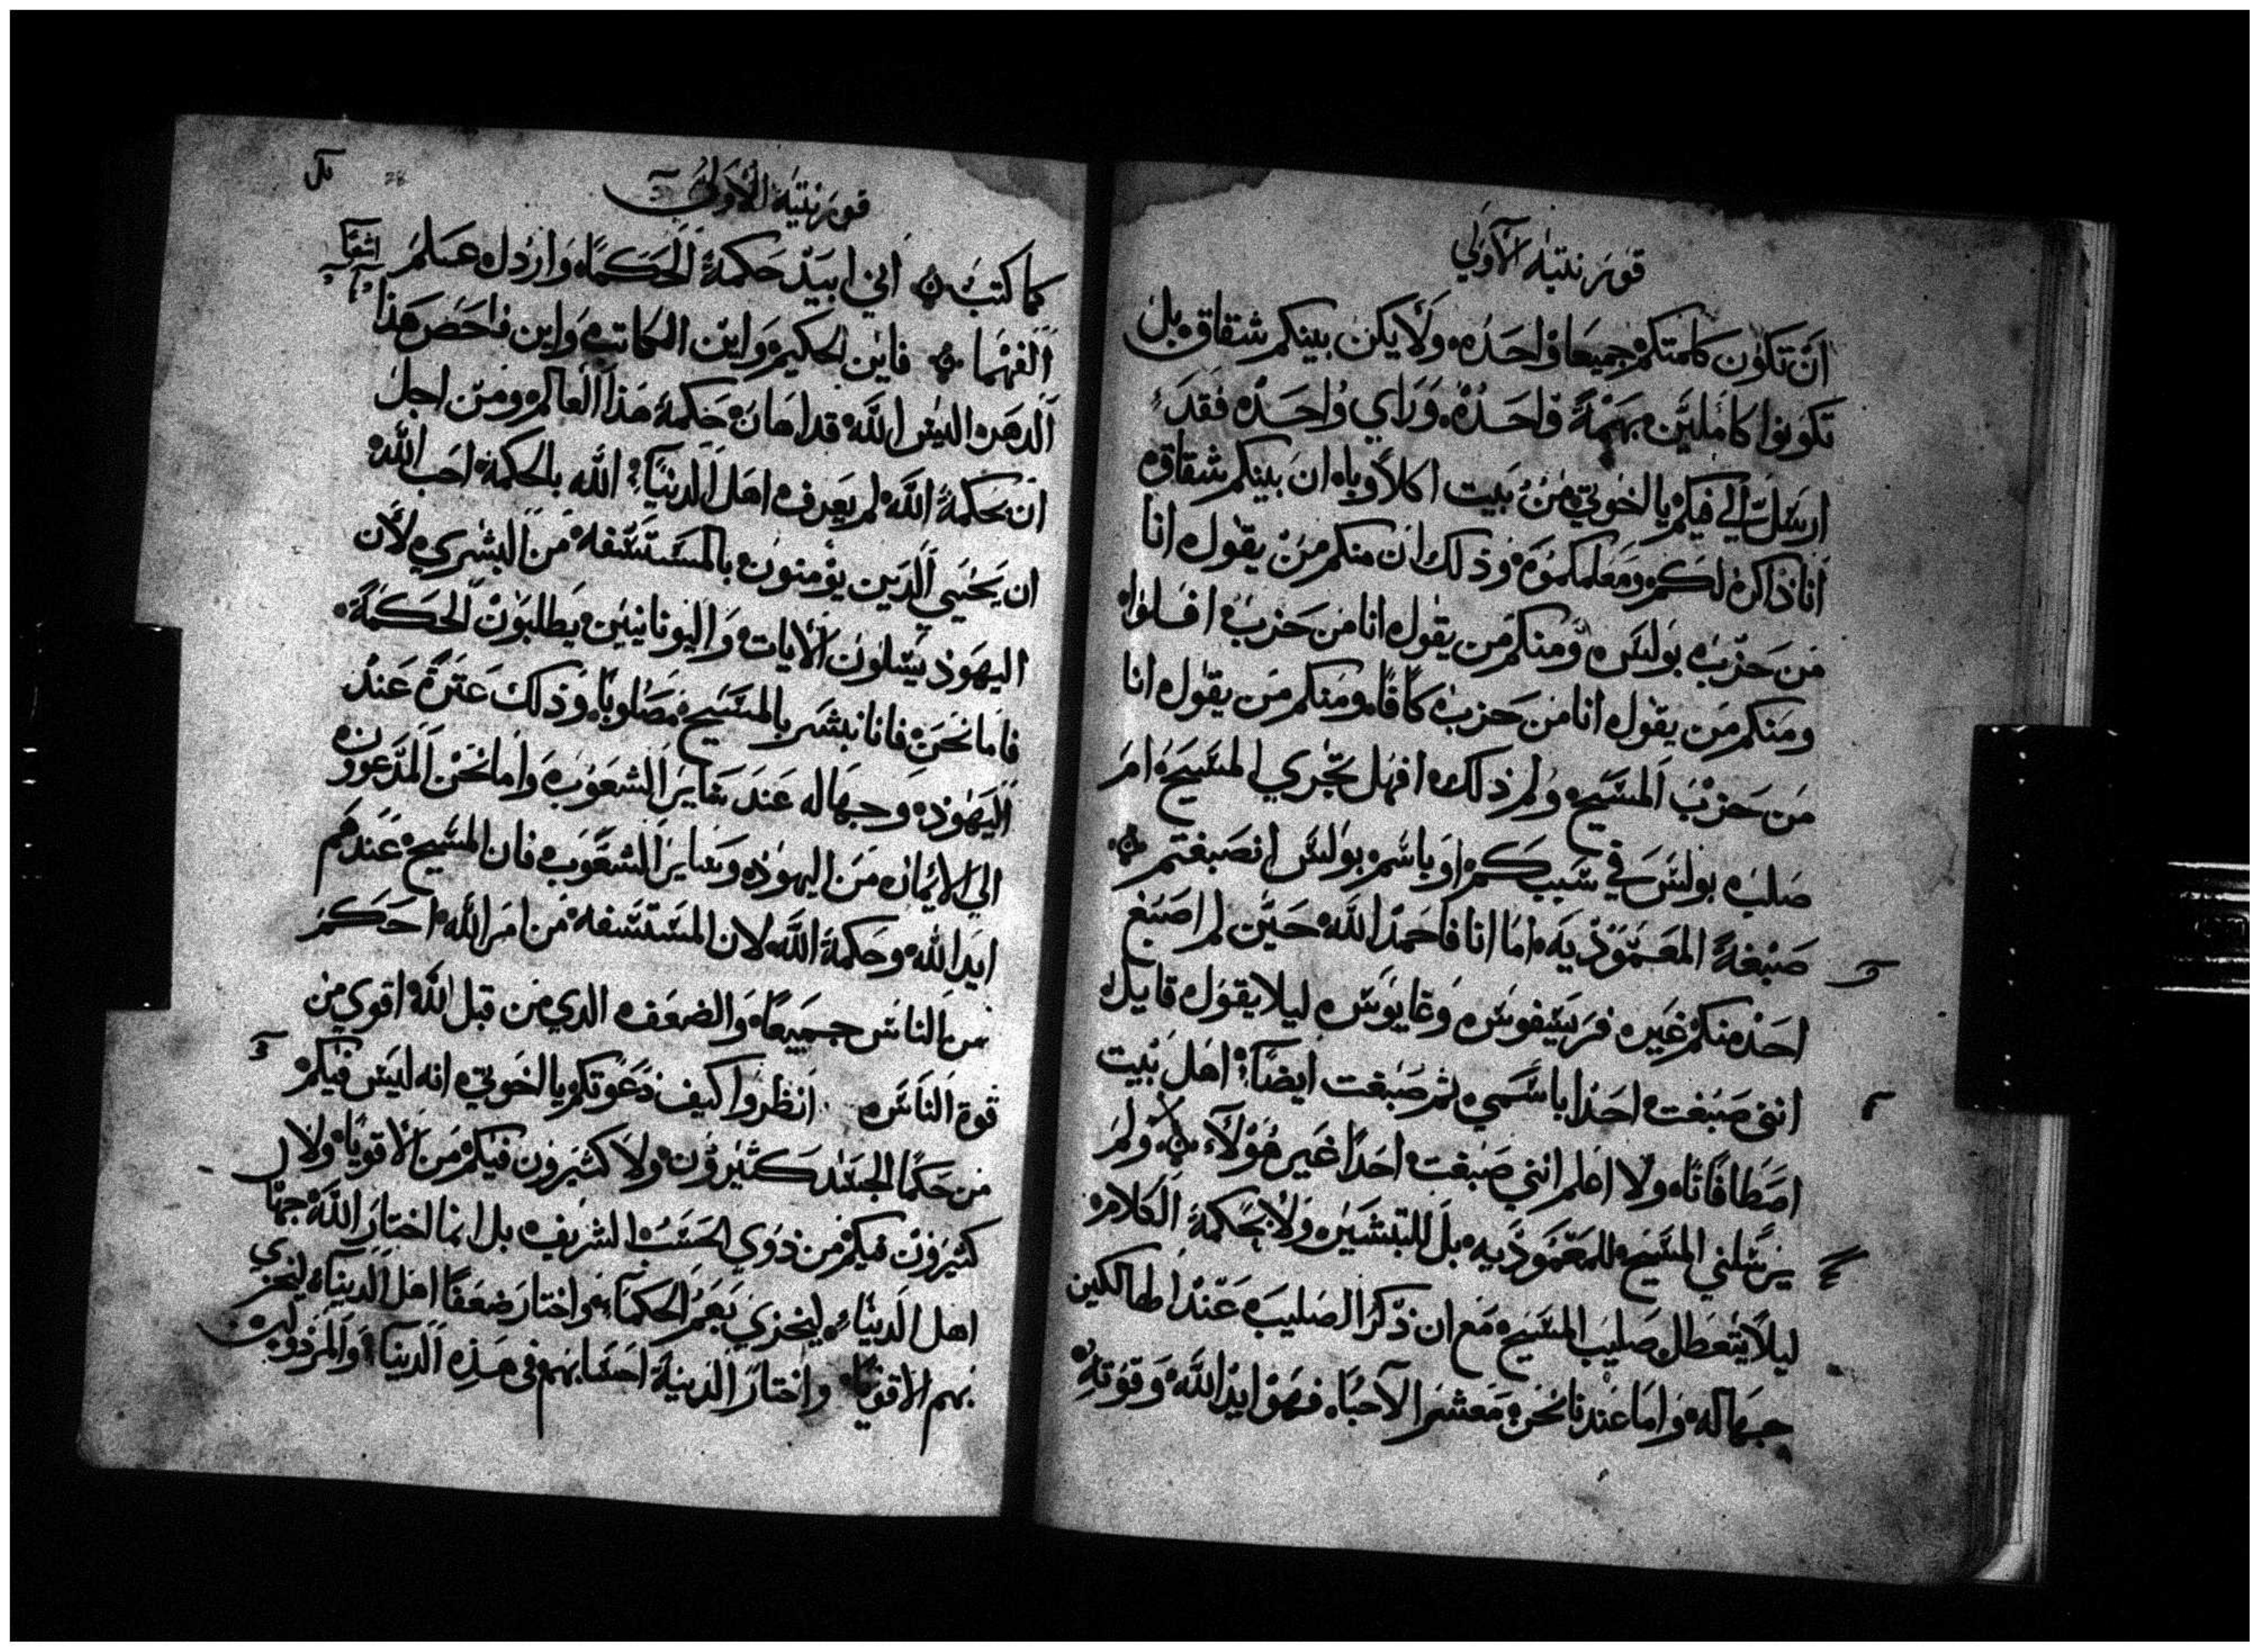 قورنتيه الاولي
ان تكون كلمتكم جميعا واحده ولا يكن بينكم شقاق بل
تكونوا كاملين بهمة واحده وراي واحده فقد
ارسل الي فيكم يا اخوتي من بيت اكلاوباه ان بينكم شقاق
انا ذاكره لكم ومعلمكموه وذلك ان منكم من يقول انا
من حزب بولس ومنكم من يقول انا من حزب افلوا
ومنكم من يقول انا من حزب كافا ومنكم من يقول انا
من حزب المسيح ولم ذلك افهل تجزي المسيح ام
صلب بولس في سببكم او باسم بولس انصبغتم
صبغة المعموذيه اما انا فاحمد الله حين لم اصبغ
احد منكم غير فرسيفوس وغايوس ليلا يقول قايل
انني صبغت احدا باسمي ثم صبغت ايضا اهل بيت
اصطافانا ولا اعلم انني صبغت احدا غير هولاء ولم
يرسلني المسيح للمعموذيه بل للتبشير ولا بحكمة الكلام
ليلا يتعطل صليب المسيح مع ان ذكر الصليب عند الهالكين
جهاله واما عندنا نحن معشر الاحبا فهو ايد الله وقوته
قورنتية الاولي
كما كتب اني ابيد حكمة الحكما وارذل علم
اشعيا
الفهما فاين الحكيم واين الكاتب واين فاحص هذا
الدهر اليس الله قد اهان حكمة هذا العالم ومن اجل
ان بحكمة الله لم يعرف اهل الدنيا الله بالحكمة احب الله
ان يحيي الذين يومنون بالمستسفه من البشري لان
اليهود يسلون الايات واليونانيين يطلبون الحكمة
فاما نحن فانا نبشر بالمسيح مصلوبا وذلك عثرة عند
اليهود وجهاله عند ساير الشعوب واما نحن المدعوون
الي الايمان من اليهود وساير الشعوب فان المسيح عندهم
ايد الله وحكمة الله لان المستسفه من امر الله احكم
من الناس جميعا والضعف الذي من قبل الله اقوي من
قوة الناس انظروا كيف دعوتكم يا اخوتي انه ليس فيكم
من حكما الجسد كثيرون ولا كثيرون فيكم من الاقويا ولا
كثيرون فيكم من ذوي الحسب الشريف بل انما اختار الله جهال
اهل الدنيا ليخزي بهم الحكما واختار ضعفا اهل الدنيا ليخزي
بهم الاقويا واختار الدنية احسابهم في هذه الدنيا والمرذولين